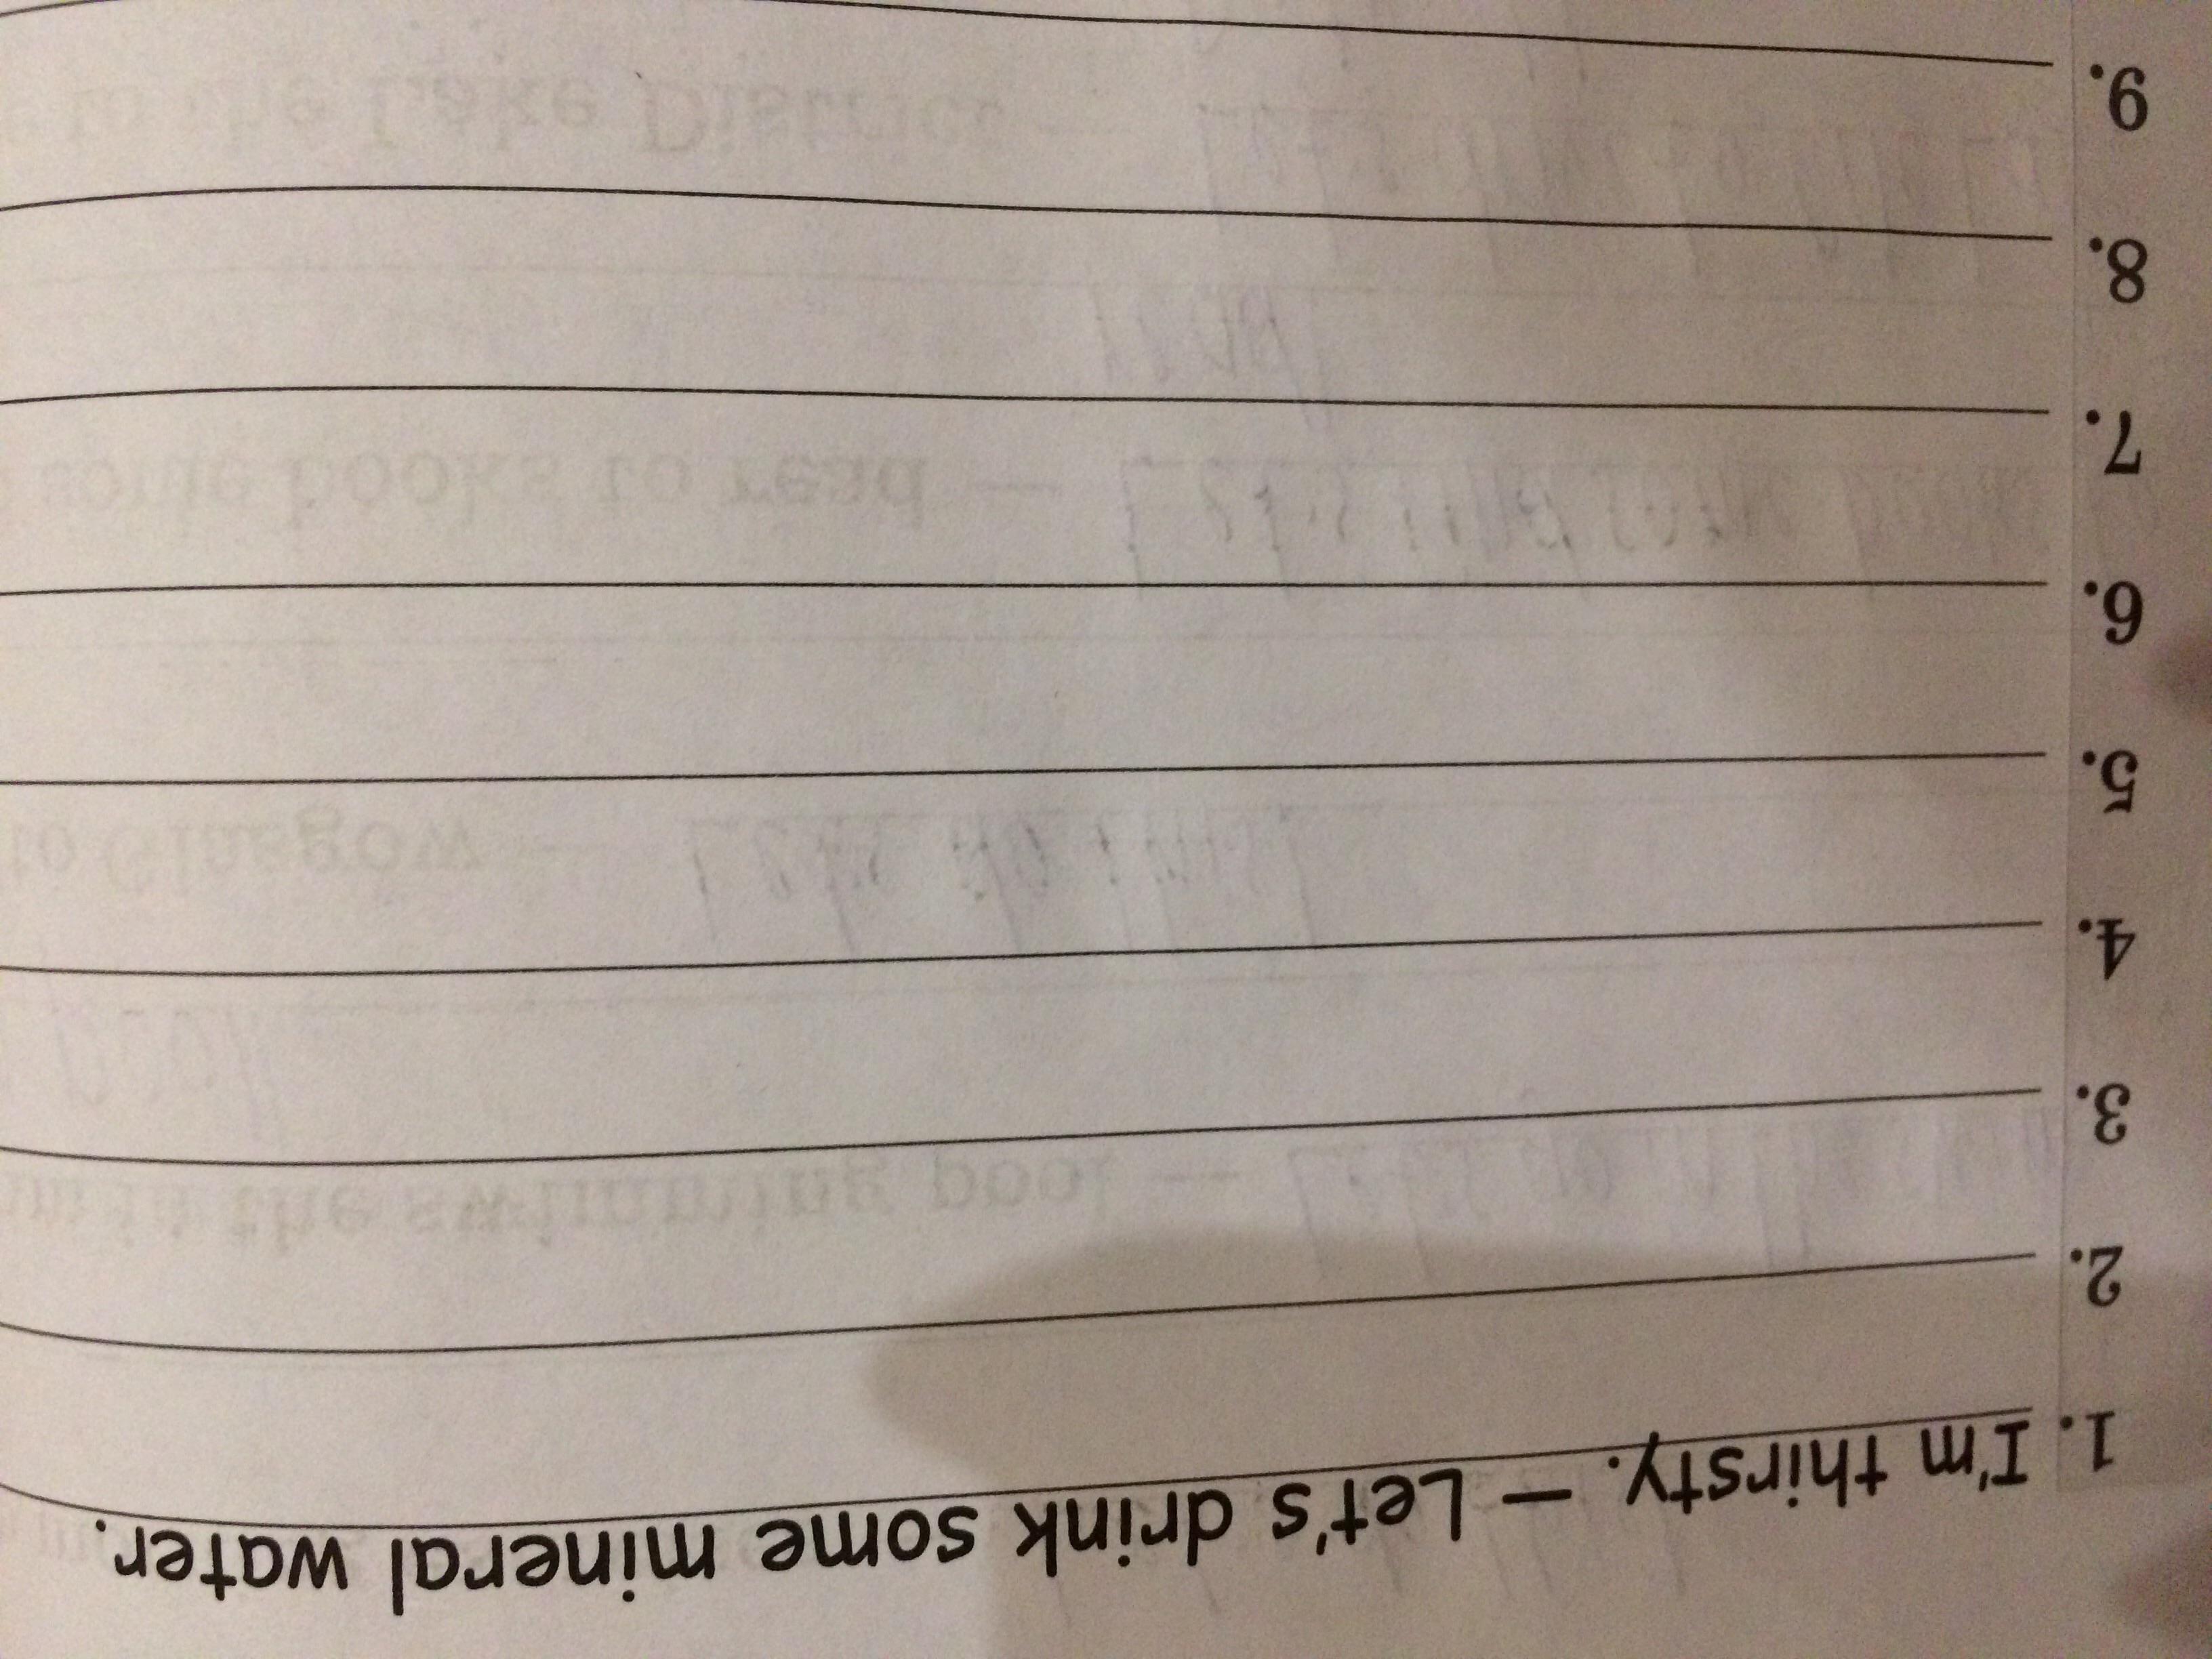 1. I'm thirsty. – Let's drink some mineral water.
2.
3.
4.
5.
6.
7.
8.
9.